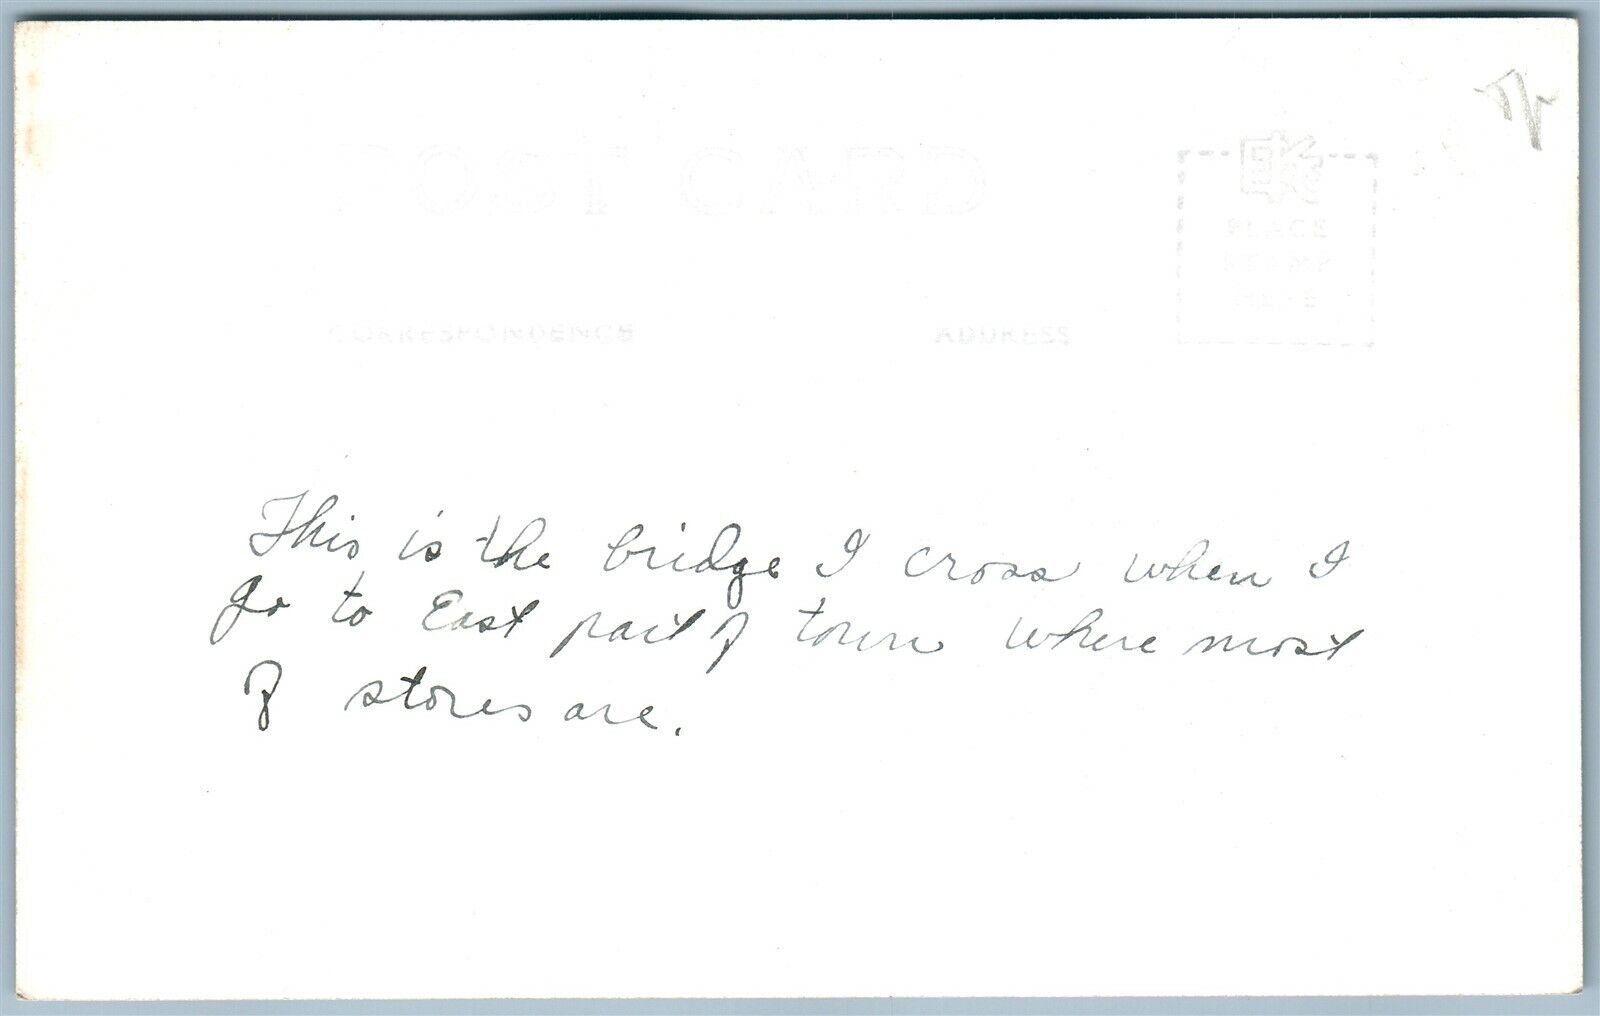 POST CARD
PLACE
STAMP
HERE
CORRESPONDENCE ADDRESS
This is the bridge I cross when I
go to East part of town where most
of stores are.